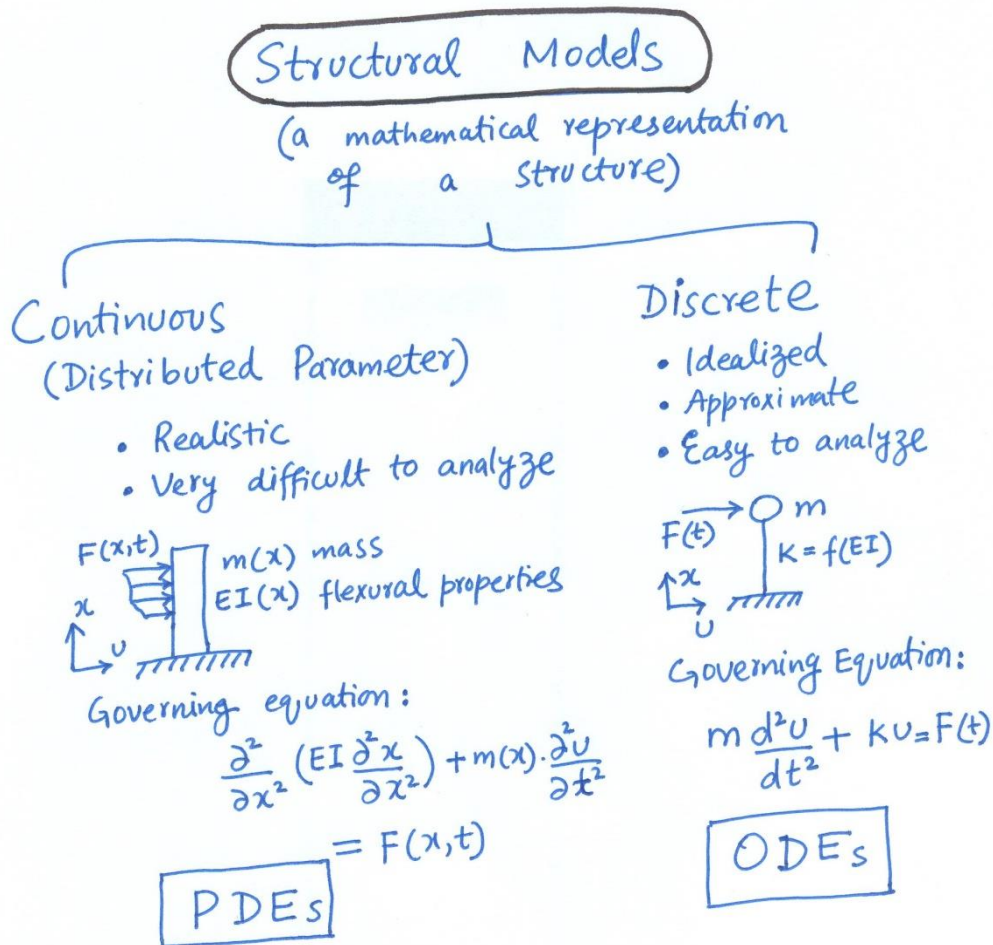 Structural Models
(a mathematical representation
of a structure)
Continuous
(Distributed Parameter)
• Realistic
• Very difficult to analyze
F(x,t)
m(x) mass
EI(x) flexural properties
x
U
Governing equation:
∂²/∂x² (EI ∂²x/∂x²) + m(x)·∂²U/∂t²
= F(x,t)
PDEs
Discrete
• Idealized
• Approximate
• Easy to analyze
F(t)
m
K = f(EI)
x
U
Governing Equation:
m d²U/dt² + KU = F(t)
ODEs